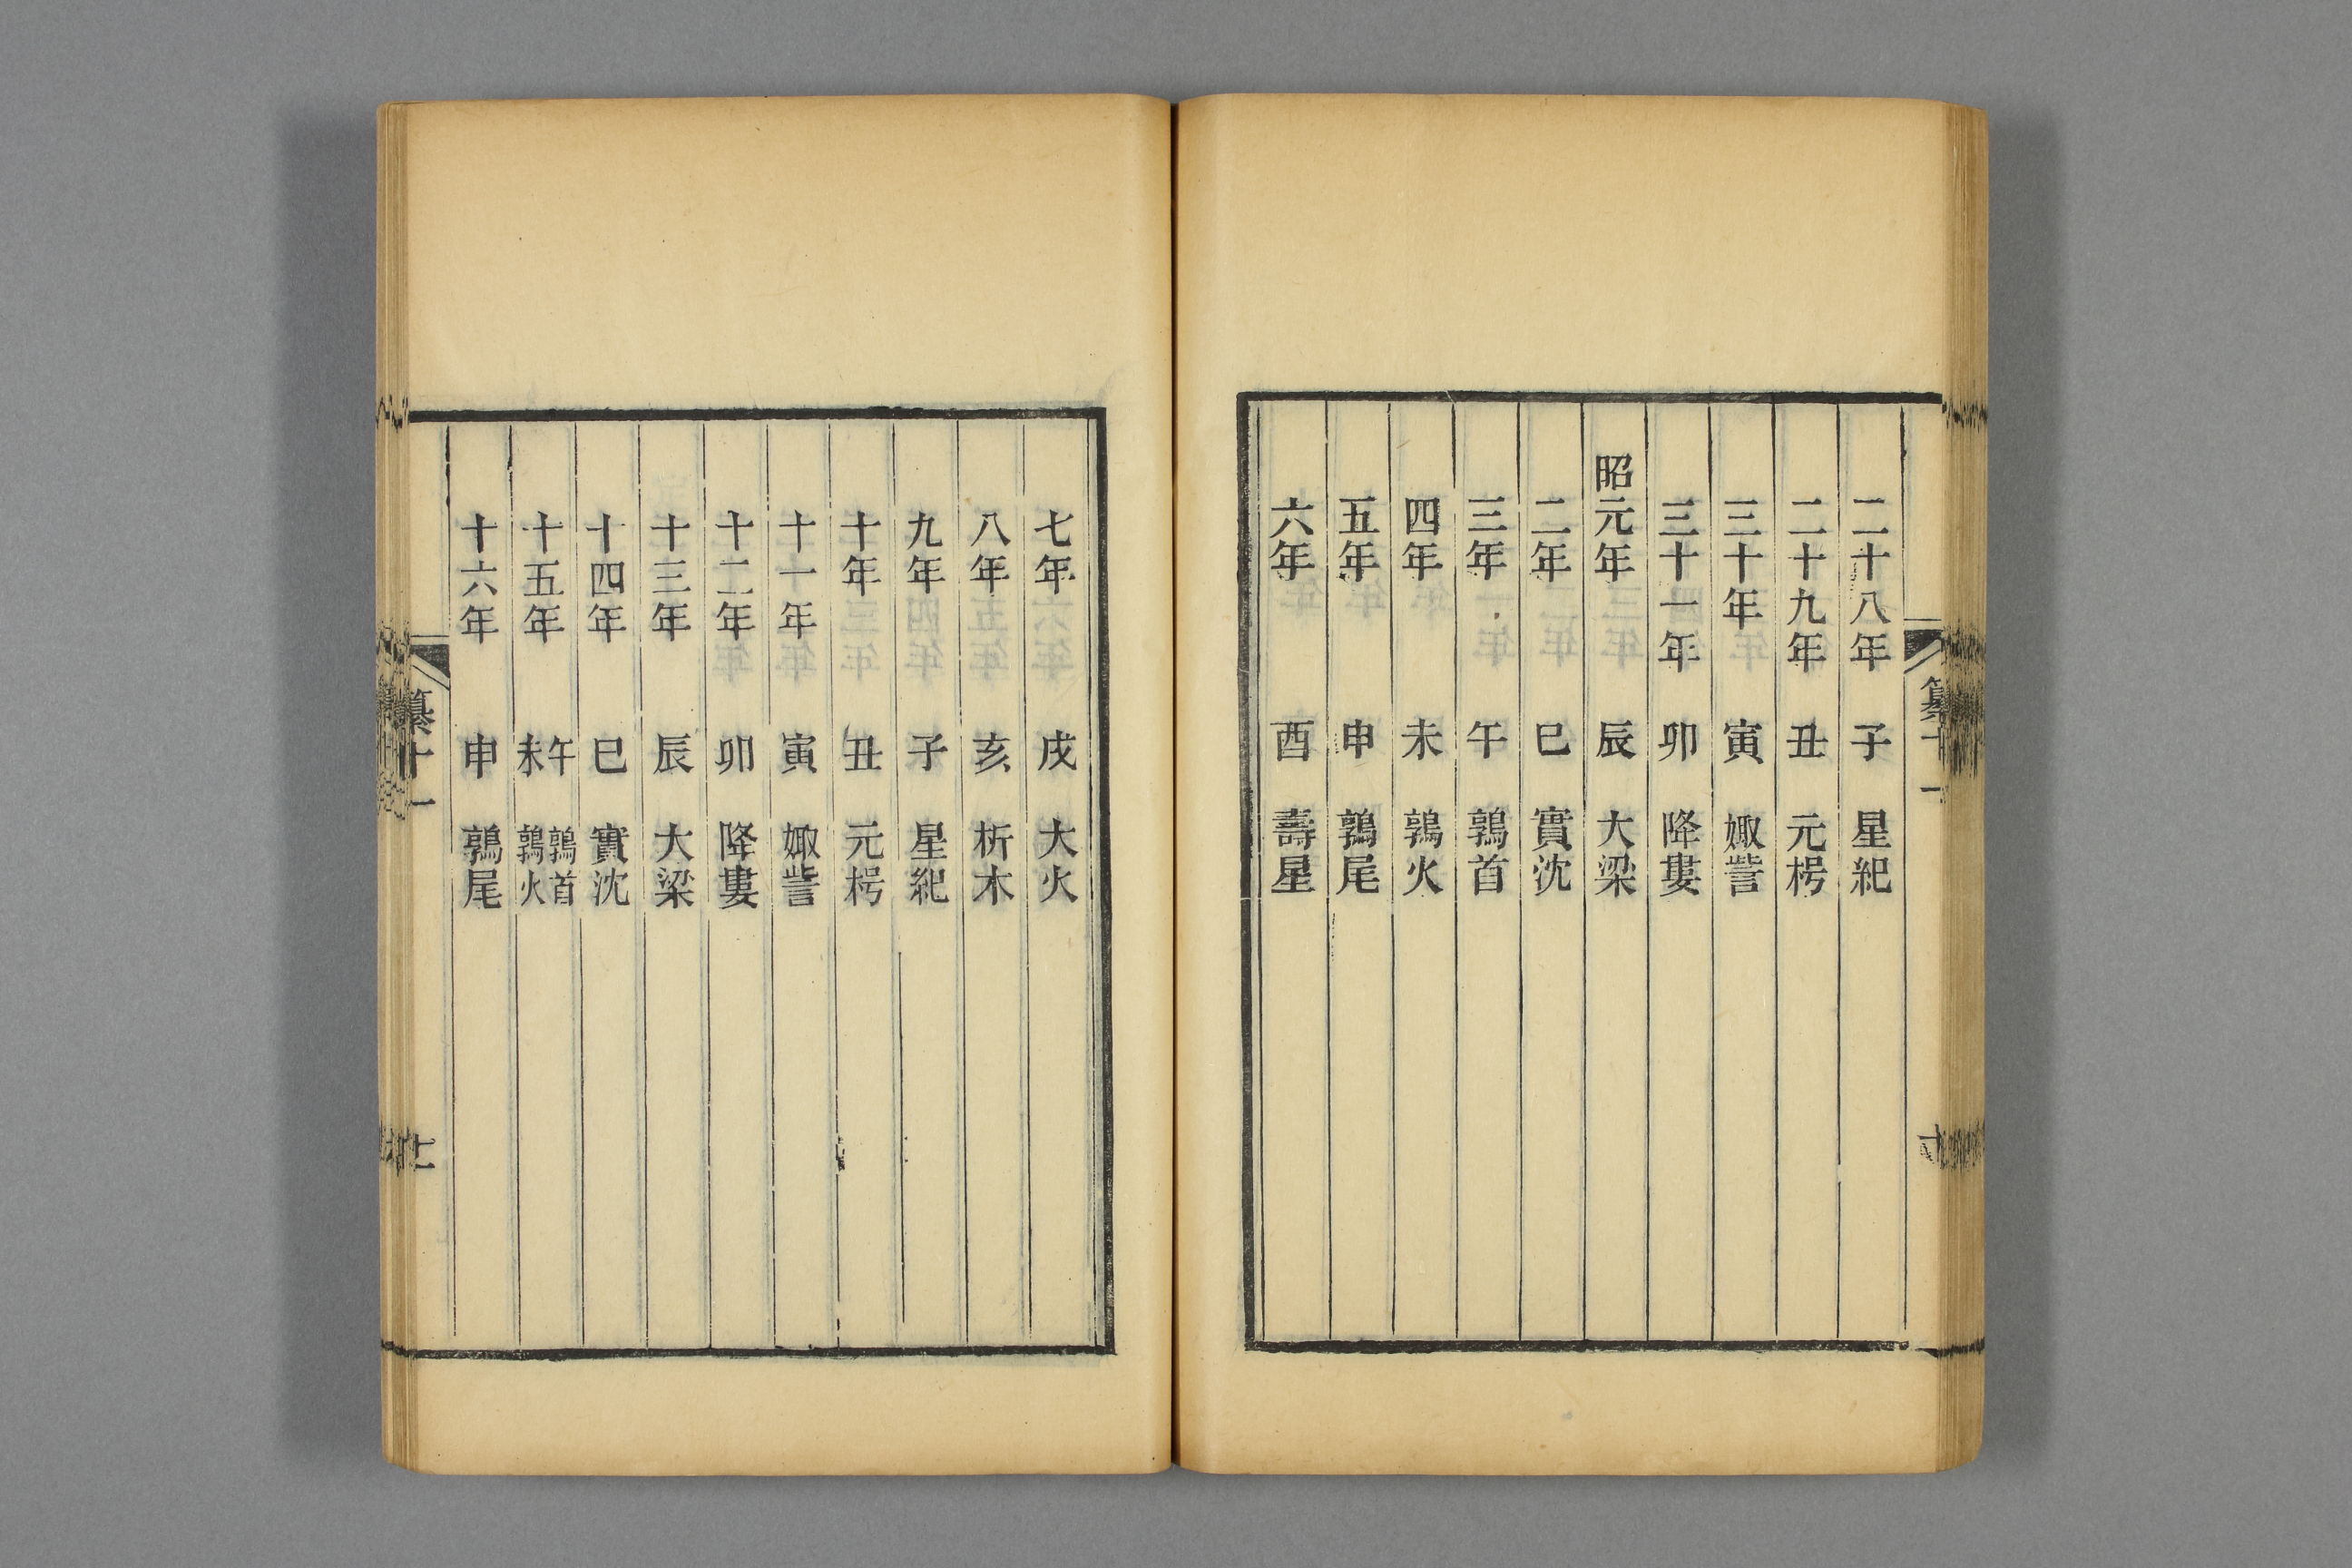 二十八年 子 星紀
二十九年 丑 元枵
三十年 寅 娵訾
三十一年 卯 降婁
昭元年 辰 大梁
二年 巳 實沈
三年 午 鶉首
四年 未 鶉火
五年 申 鶉尾
六年 酉 壽星
七年 戌 大火
八年 亥 析木
九年 子 星紀
十年 丑 元枵
十一年 寅 娵訾
十二年 卯 降婁
十三年 辰 大梁
十四年 巳 實沈
十五年 午未 鶉首鶉火
十六年 申 鶉尾
纂十一